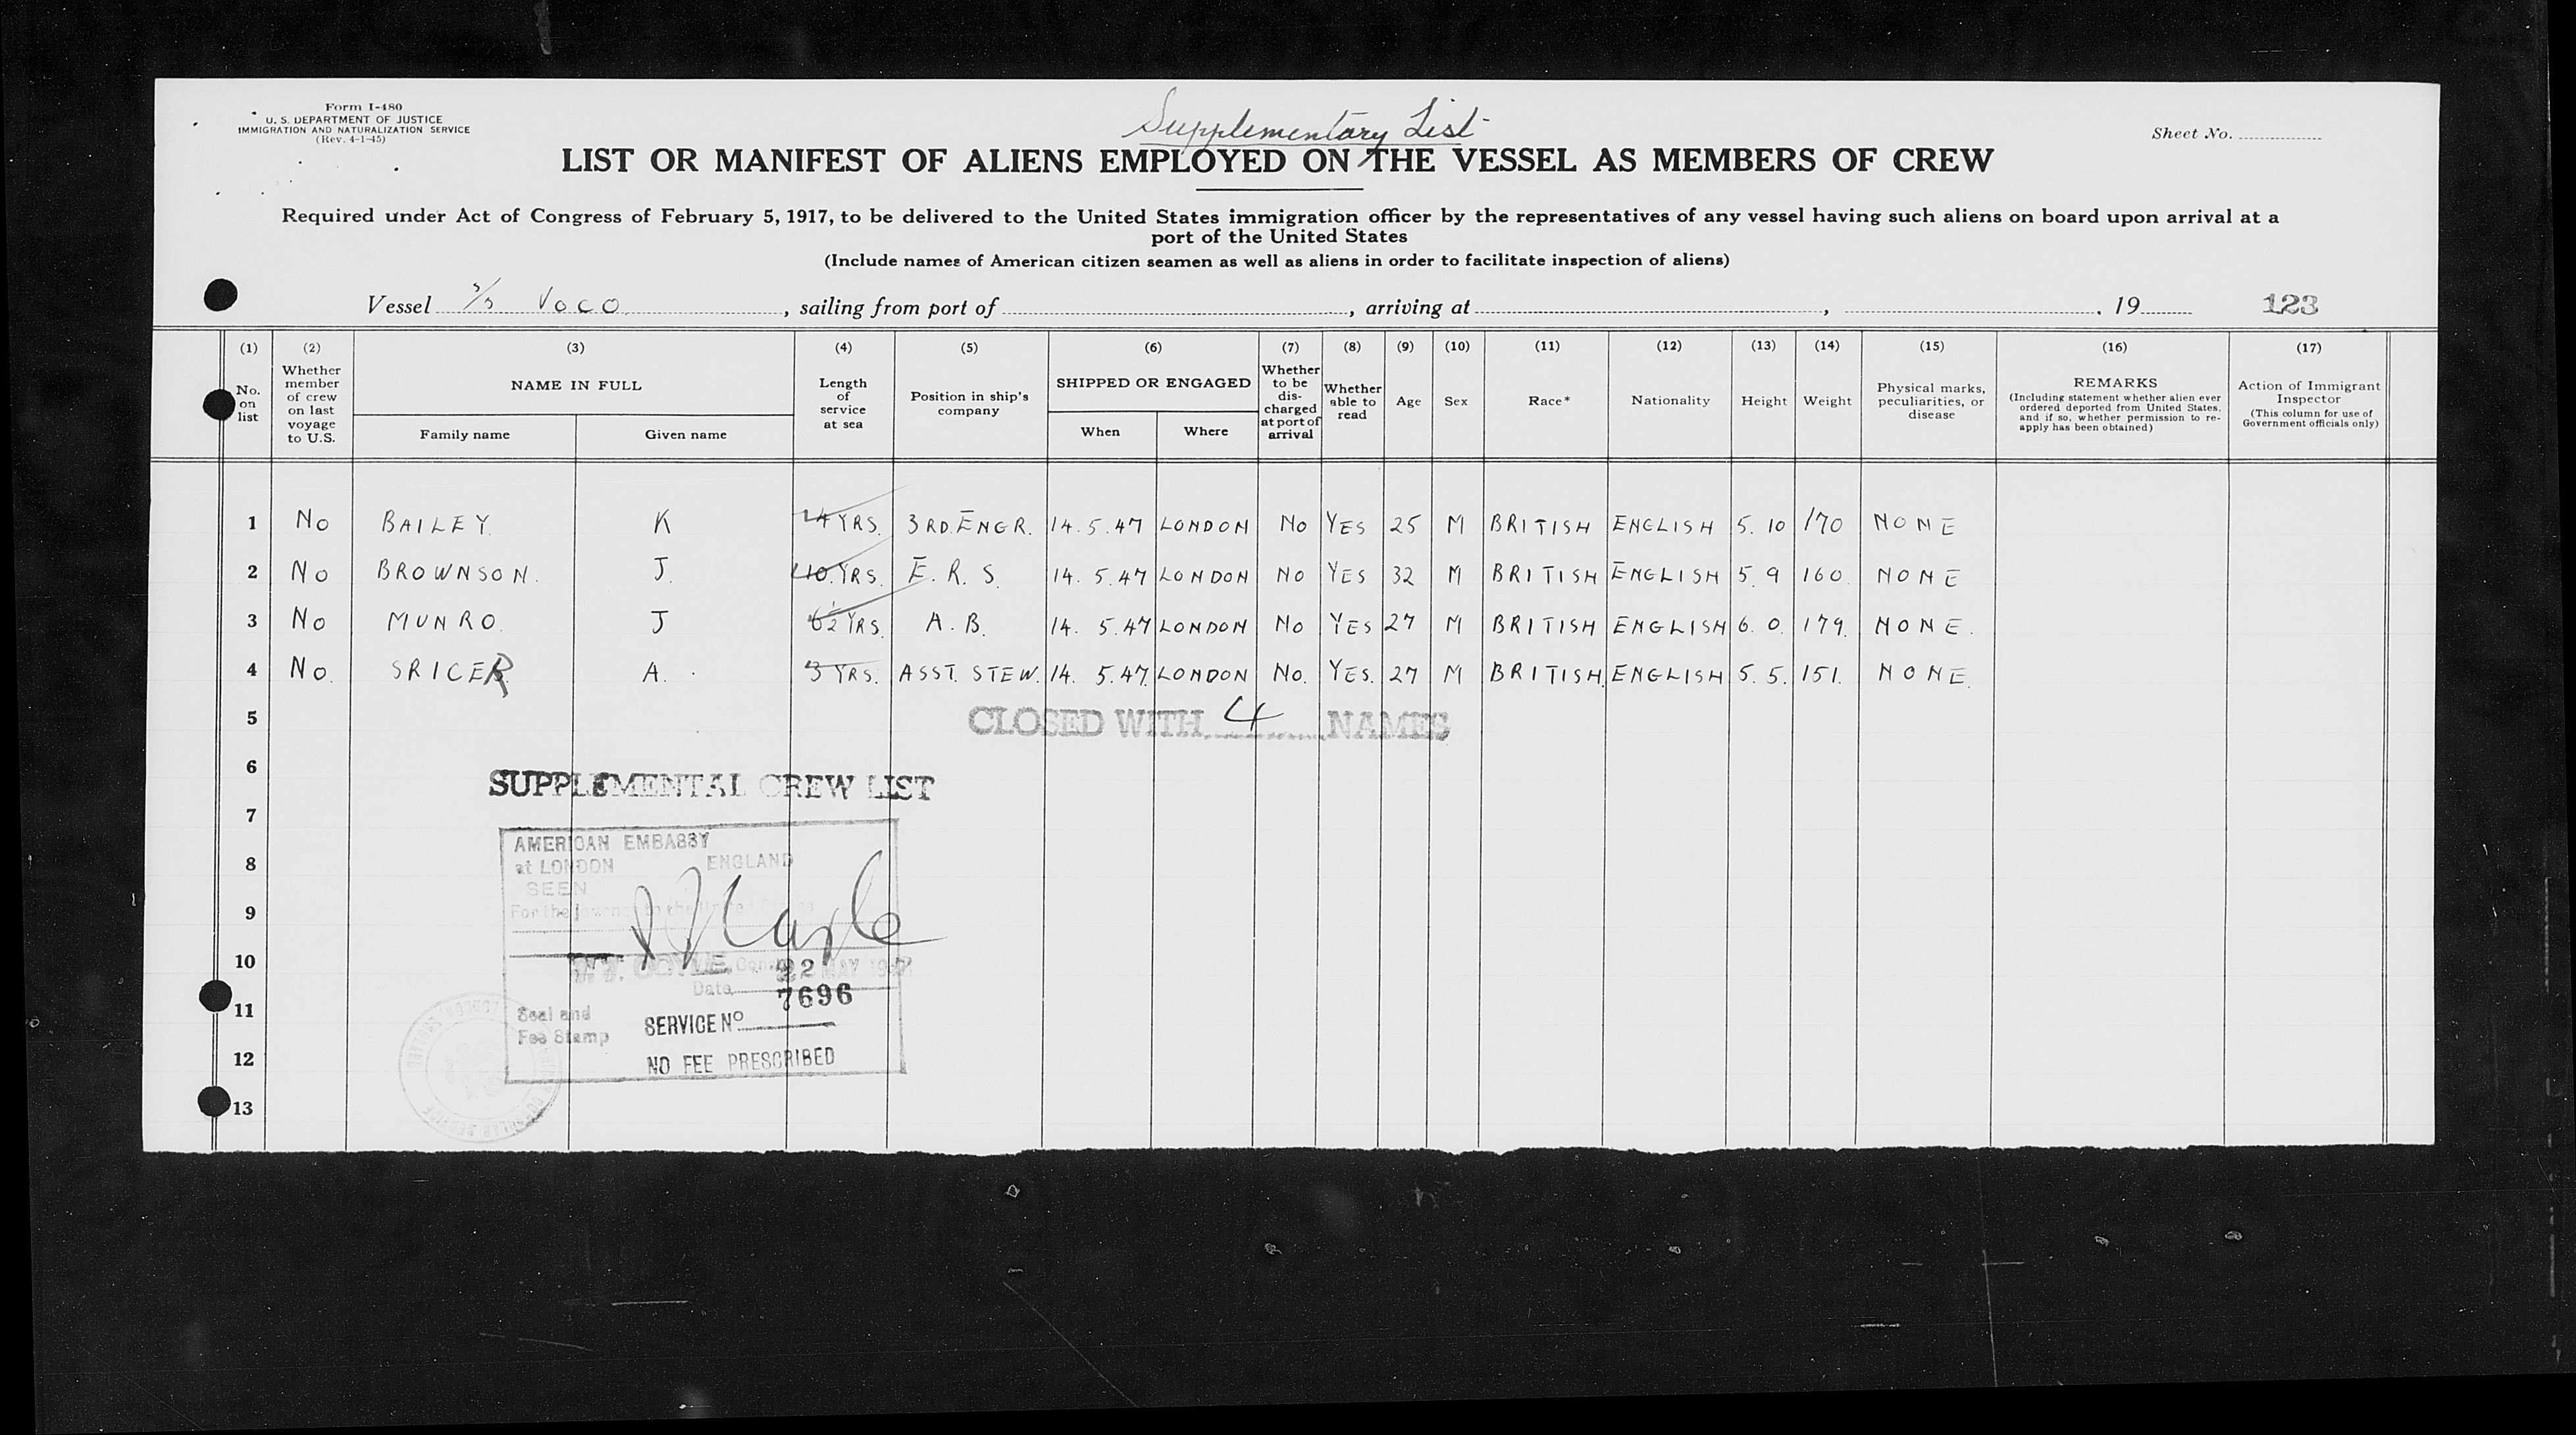 Form I-480
U. S. DEPARTMENT OF JUSTICE
IMMIGRATION AND NATURALIZATION SERVICE
(Rev. 4-1-45)
Supplementary List
Sheet No.
LIST OR MANIFEST OF ALIENS EMPLOYED ON THE VESSEL AS MEMBERS OF CREW
Required under Act of Congress of February 5, 1917, to be delivered to the United States immigration officer by the representatives of any vessel having such aliens on board upon arrival at a
port of the United States
(Include names of American citizen seamen as well as aliens in order to facilitate inspection of aliens)
Vessel S/S VOCO, sailing from port of , arriving at , . 19 123
(1) (2) (3) (4) (5) (6) (7) (8) (9) (10) (11) (12) (13) (14) (15) (16) (17)
No. on list
Whether member of crew on last voyage to U.S.
NAME IN FULL
Family name
Given name
Length of service at sea
Position in ship's company
SHIPPED OR ENGAGED
When
Where
Whether to be discharged at port of arrival
Whether able to read
Age
Sex
Race*
Nationality
Height
Weight
Physical marks, peculiarities, or disease
REMARKS
(Including statement whether alien ever ordered deported from United States, and if so, whether permission to re-apply has been obtained)
Action of Immigrant Inspector
(This column for use of Government officials only)
1 No BAILEY K 4 YRS. 3RD. ENGR. 14. 5. 47 LONDON No YES 25 M BRITISH ENGLISH 5. 10 170 NONE
2 No BROWNSON. J. 10. YRS. E. R. S. 14. 5.47 LONDON No YES 32 M BRITISH ENGLISH 5. 9 160 NONE
3 No MUNRO. J 6½ YRS. A. B. 14. 5.47 LONDON No YES 27 M BRITISH ENGLISH 6. 0. 179. NONE.
4 No. SRICER A. 3 YRS. ASST. STEW. 14. 5.47. LONDON No. YES. 27 M BRITISH. ENGLISH 5. 5. 151. NONE.
5
CLOSED WITH 4 NAMES
6
SUPPLEMENTAL CREW LIST
7
AMERICAN EMBASSY
8
at LONDON ENGLAND
SEEN
9
For the journey to the United States
10
22 MAY 1947
Date
7696
11
Seal and
Fee Stamp
SERVICE Nº
12
NO FEE PRESCRIBED
13